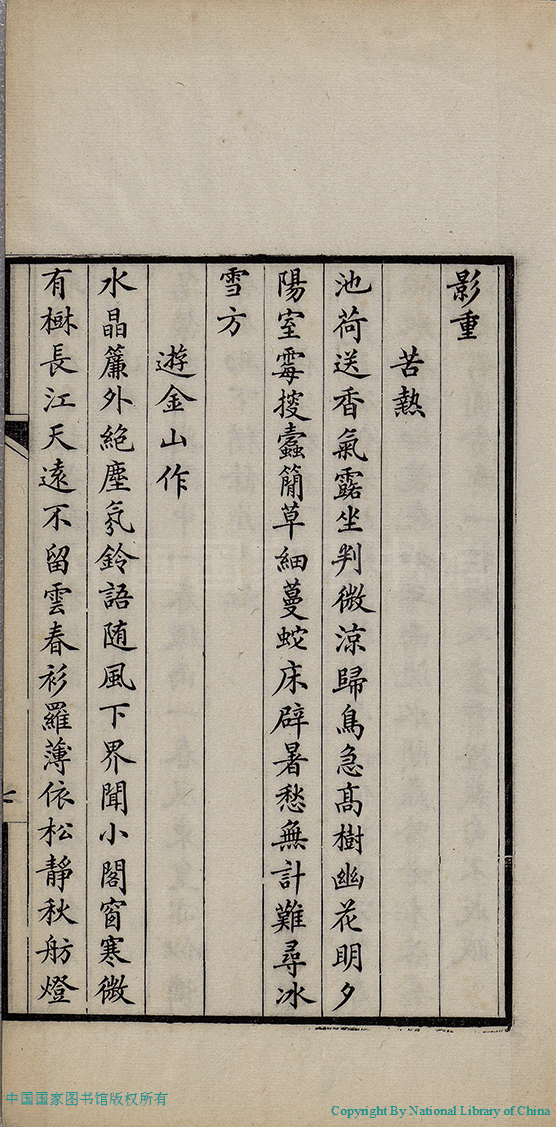 影重
苦熱
池荷送香氣露坐判微涼歸鳥急高樹幽花明夕
陽室霉搜蠹簡草細蔓蛇床辟暑愁無計難尋冰
雪方
遊金山作
水晶簾外絶塵氛鈴語随風下界聞小閣窗寒微
有樹長江天遠不留雲春衫羅薄依松靜秋舫燈
七
中国国家图书馆版权所有
Copyright By National Library of China